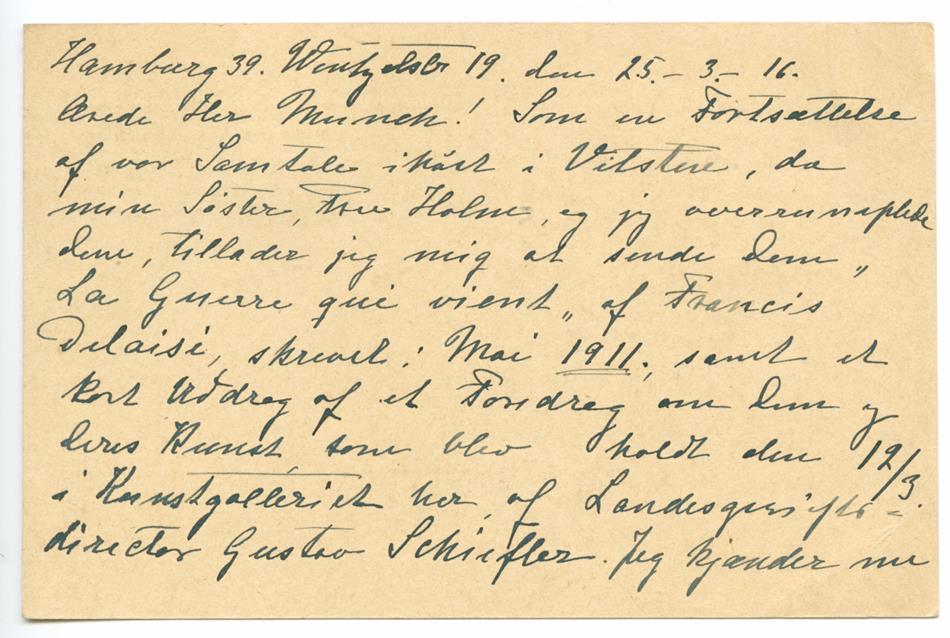 Hamburg 39. Wentzelstr 19. den 25.-3.-16.
Ærede Her Munch! Som en Fortsættelse
af vor Samtale ihöst i Vitsten, da
min Söster, Frue Holm, og jeg overrumplede
Dem, tillader jeg mig at sende Dem „
La Guerre qui vient„ af Francis
Delaisi, skrevet i Mai 1911., samt et
kort Uddrag af et Foredrag om Dem og
Deres Kunst som blev holdt den 12/3
i Kunstgalleriet her, af Landesgerichts-
director Gustav Schiefler. Jeg kjænder nu